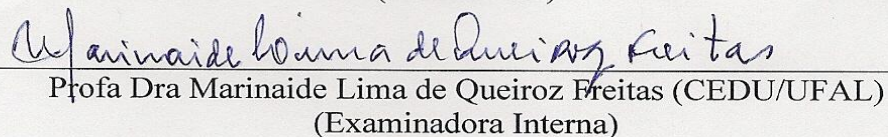 Marinaide Lima de Queiroz Freitas
Profa Dra Marinaide Lima de Queiroz Freitas (CEDU/UFAL)
(Examinadora Interna)